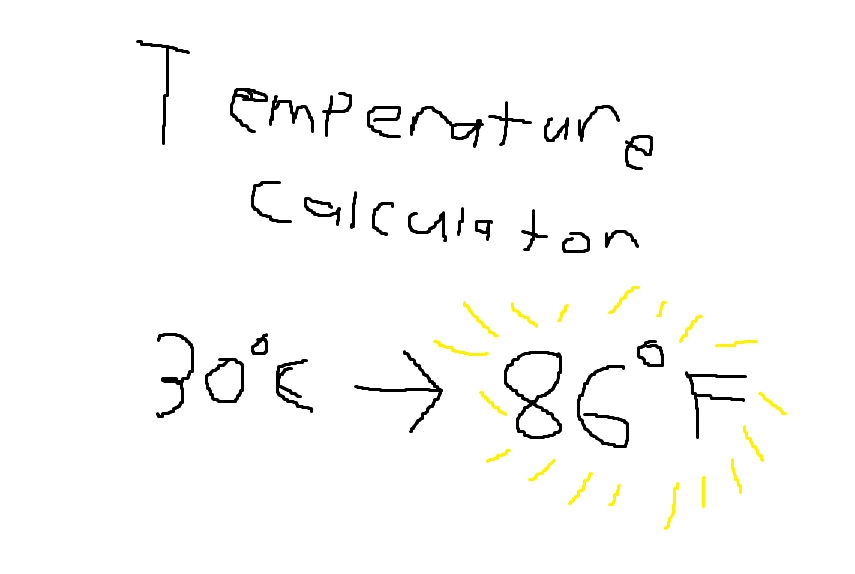 Temperature
calculator
30°C → 86°F